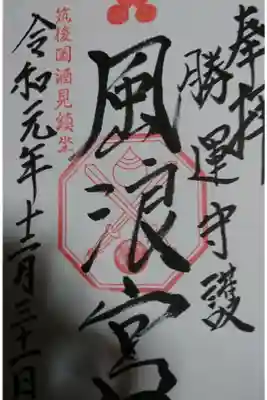 奉拝
勝運守護
風浪宮
筑後國酒見鎮坐
令和元年十二月三十一日